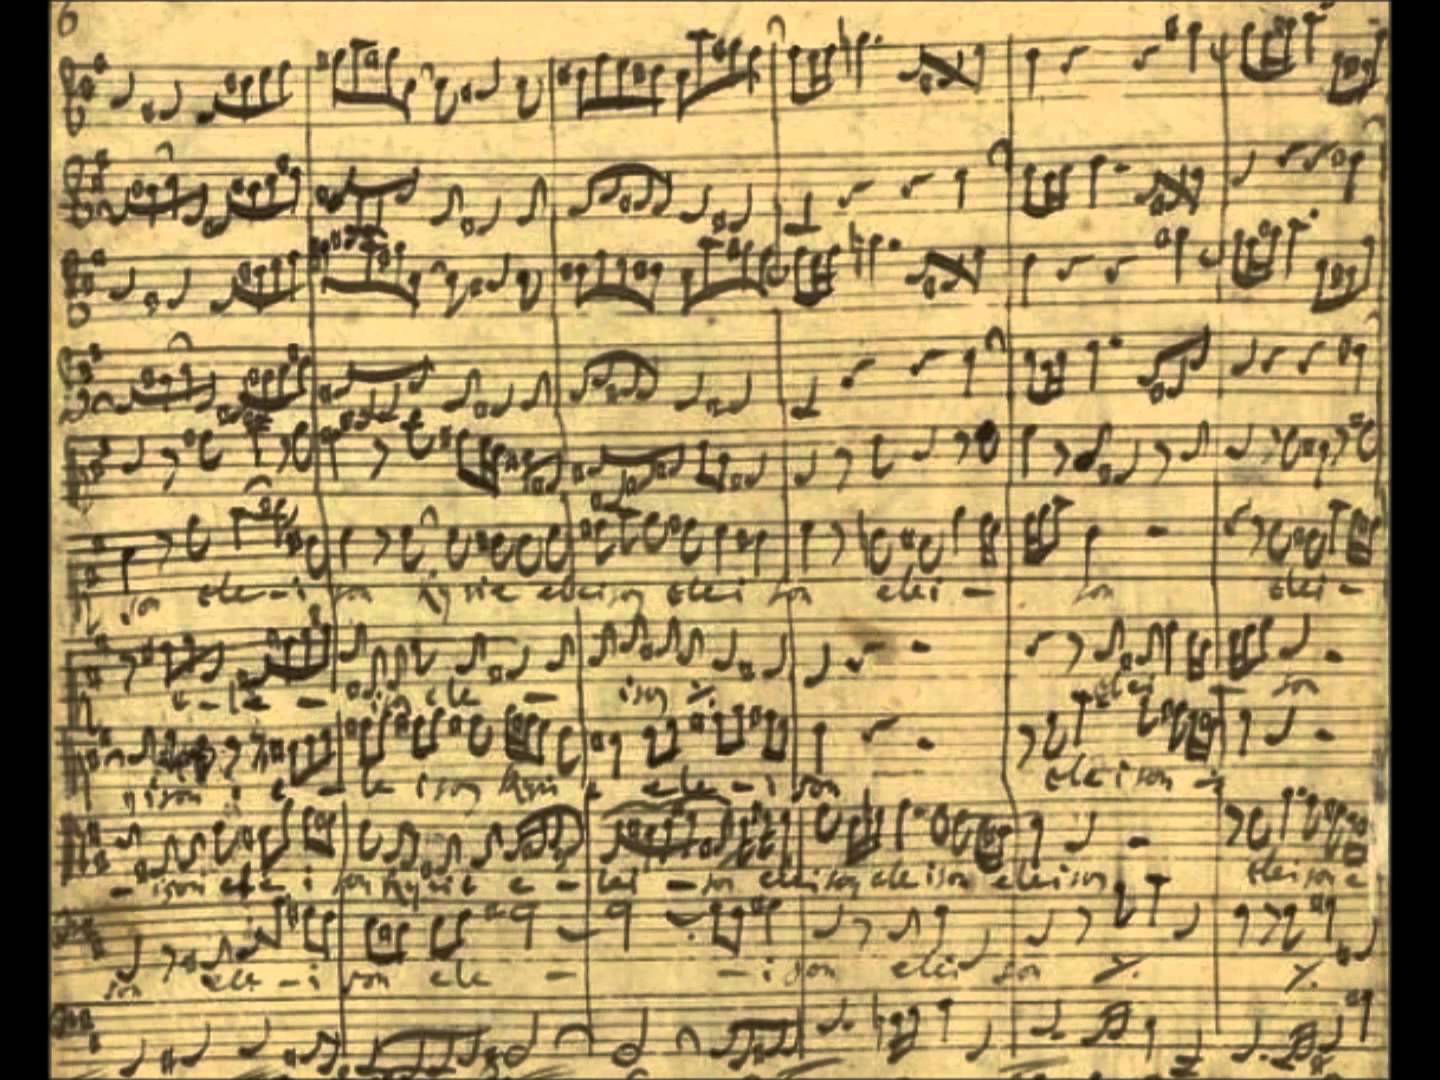 6
son ele-i son Kyrie eleison elei son elei - son elei -
e-le - ele - ison elei - son
ison e - le ison Kyrie ele-i son eleison
- ison ele i son Kyrie e - lei - son eleison eleison eleison eleison e
son ele-i son ele - - i son elei son